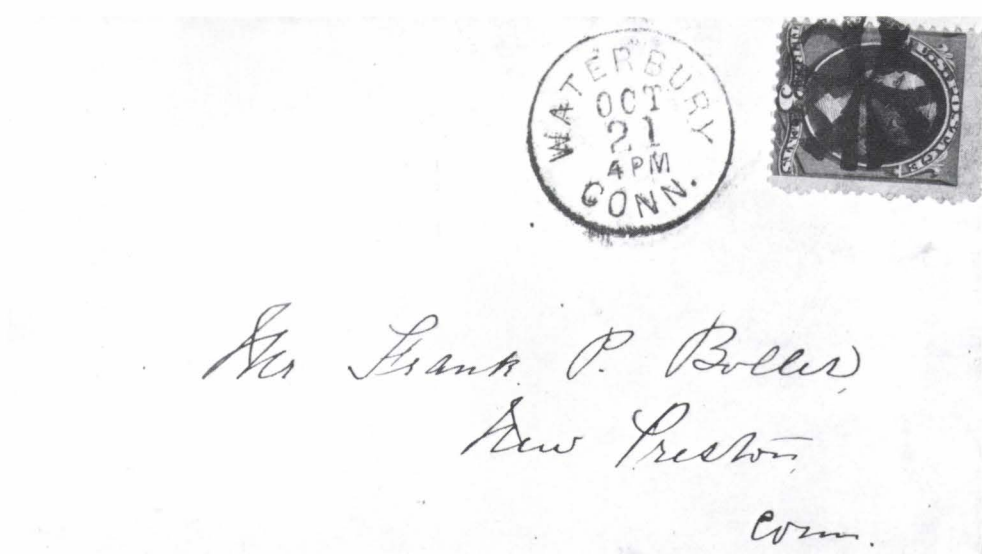 WATERBURY
OCT
21
4 PM
CONN.
U.S. POSTAGE
Mr Frank P. Boller,
New Preston,
Conn.